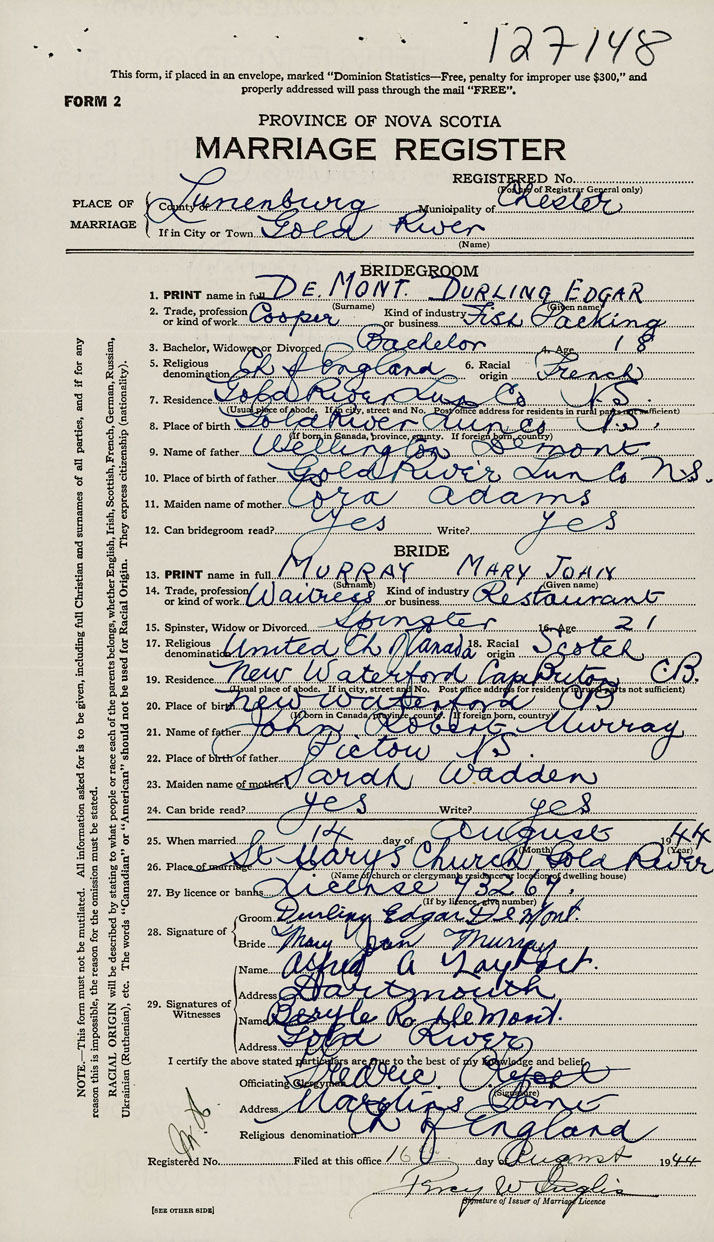 127148
This form, if placed in an envelope, marked "Dominion Statistics—Free, penalty for improper use $300," and
properly addressed will pass through the mail "FREE".
FORM 2
PROVINCE OF NOVA SCOTIA
MARRIAGE REGISTER
REGISTERED No.
(For use of Registrar General only)
PLACE OF MARRIAGE
County of Lunenburg Municipality of Chester
If in City or Town Gold River
(Name)
BRIDEGROOM
1. PRINT name in full DE MONT DURLING EDGAR
(Surname) (Given name)
2. Trade, profession or kind of work Cooper Kind of industry or business Fish Packing
3. Bachelor, Widower or Divorced Bachelor 4. Age 18
5. Religious denomination Ch of England 6. Racial origin French
7. Residence Gold River Lun Co N.S.
(Usual place of abode. If in city, street and No. Post office address for residents in rural parts not sufficient)
8. Place of birth Gold River Lun Co N.S.
(If born in Canada, province, county. If foreign born, country)
9. Name of father Wellington Demont
10. Place of birth of father Gold River Lun Co N.S.
11. Maiden name of mother Cora Adams
12. Can bridegroom read? yes Write? yes
BRIDE
13. PRINT name in full MURRAY MARY JOAN
(Surname) (Given name)
14. Trade, profession or kind of work Waitress Kind of industry or business Restaurant
15. Spinster, Widow or Divorced Spinster 16. Age 21
17. Religious denomination United Ch Canada 18. Racial origin Scotch
19. Residence New Waterford Cap Briton C.B.
(Usual place of abode. If in city, street and No. Post office address for residents in rural parts not sufficient)
20. Place of birth New Waterford CB
(If born in Canada, province, county. If foreign born, country)
21. Name of father John Robert Murray
22. Place of birth of father Pictou N.S.
23. Maiden name of mother Sarah Wadden
24. Can bride read? yes Write? yes
25. When married 14 day of August 1944
(Month) (Year)
26. Place of marriage St Mary's Church, Gold River
(Name of church or clergyman's residence or location of dwelling house)
27. By licence or banns License 73267.
(If by licence, give number)
28. Signature of
Groom Durling Edgar DeMont.
Bride Mary Joan Murray
29. Signatures of Witnesses
Name Alfred A
Address Dartmouth
Name Beryle R. DeMont.
Address Gold River
I certify the above stated particulars are true to the best of my knowledge and belief.
Officiating Clergyman
(Signature)
Address
Religious denomination Ch of England
Registered No. Filed at this office 16 day of August 1944
Percy W Inglis
Signature of Issuer of Marriage Licence
[SEE OTHER SIDE]
NOTE.—This form must not be mutilated. All information asked for is to be given, including full Christian and surnames of all parties, and if for any
reason this is impossible, the reason for the omission must be stated.
RACIAL ORIGIN will be described by stating to what people or race each of the parents belongs, whether English, Irish, Scottish, French, German, Russian,
Ukrainian (Ruthenian), etc. The words "Canadian" or "American" should not be used for Racial Origin. They express citizenship (nationality).